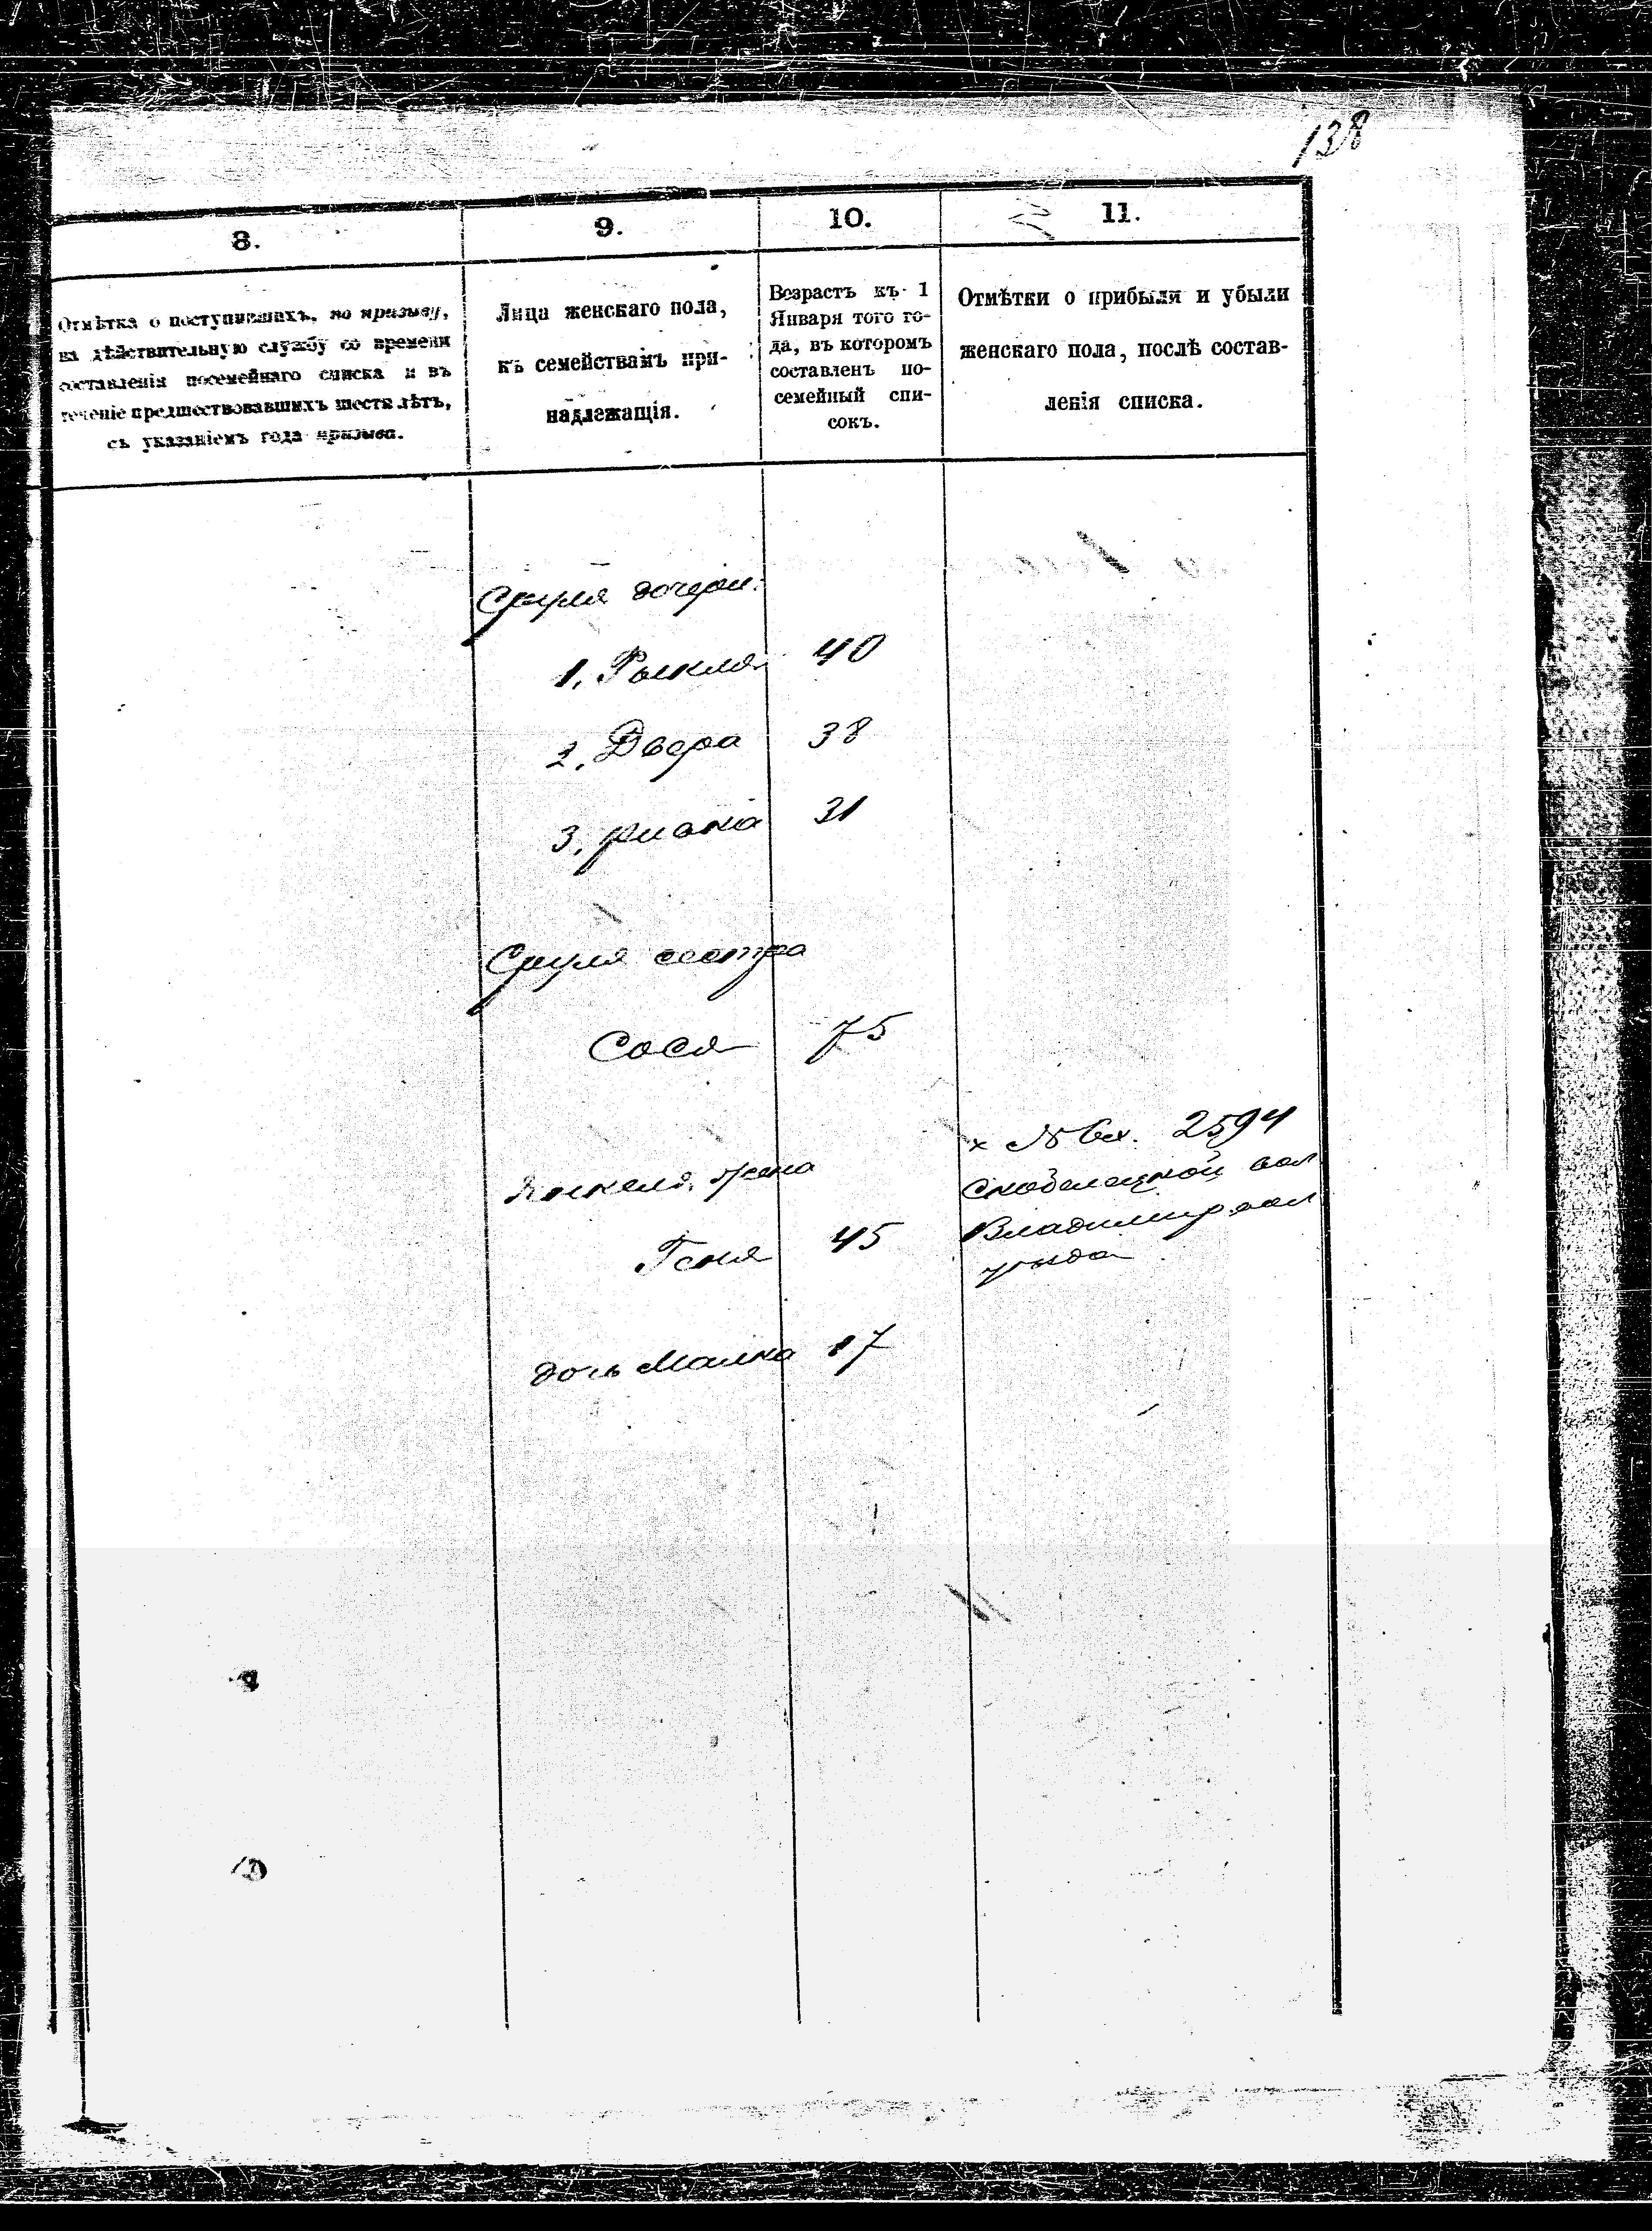 138
8.
9.
10.
11.
Отмѣтка о поступившихъ, по призыву,
на дѣйствительную службу со времени
составленія посемейнаго списка и въ
теченіе предшествовавшихъ шести лѣтъ,
съ указаніемъ года призыва.
Лица женскаго пола,
къ семействамъ при-
надлежащія.
Возрастъ къ 1
Января того го-
да, въ которомъ
составленъ по-
семейный спи-
сокъ.
Отмѣтки о прибыли и убыли
женскаго пола, послѣ состав-
ленія списка.
Сруля дочери:
1. 40
2. Двера 38
3. 31
Сруля сестра
Сося 75
жена
Геня 45
дочь Малка 17
х № вх. 2594
вол
Владимірвол
уѣзда